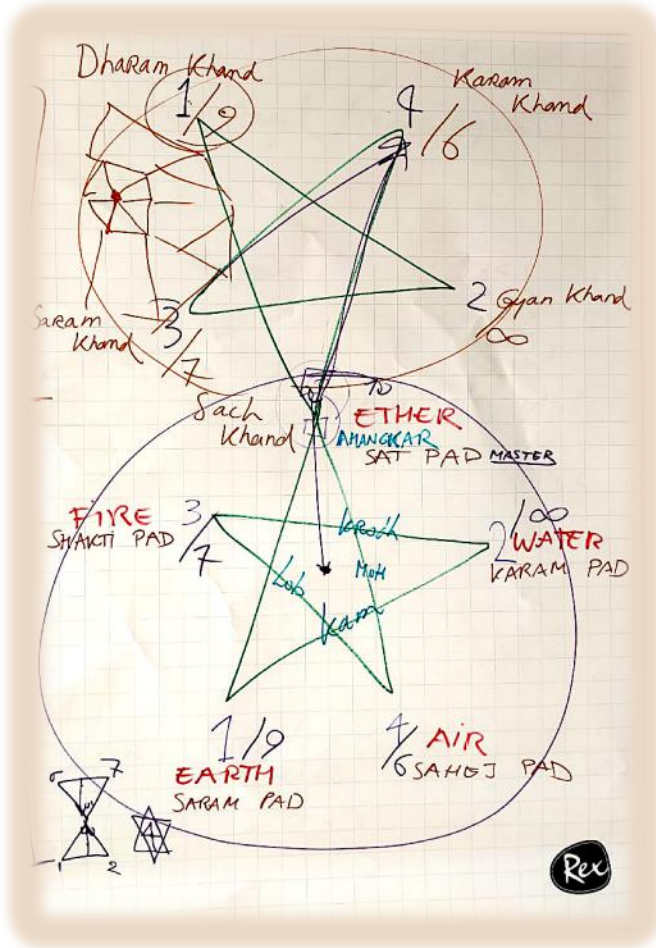 Dharam Khand
1/9
4/6
Karam
Khand
Saram
Khand
3/7
2
Gyan Khand
/∞
Sach
Khand
10
ETHER
AHANGKAR
SAT PAD MASTER
FIRE 3/7
SHAKTI PAD
2/∞
WATER
KARAM PAD
krodh
Lob
MOH
kam
1/9
EARTH
SARAM PAD
4/6
AIR
SAHEJ PAD
6 7
1 2
Rex